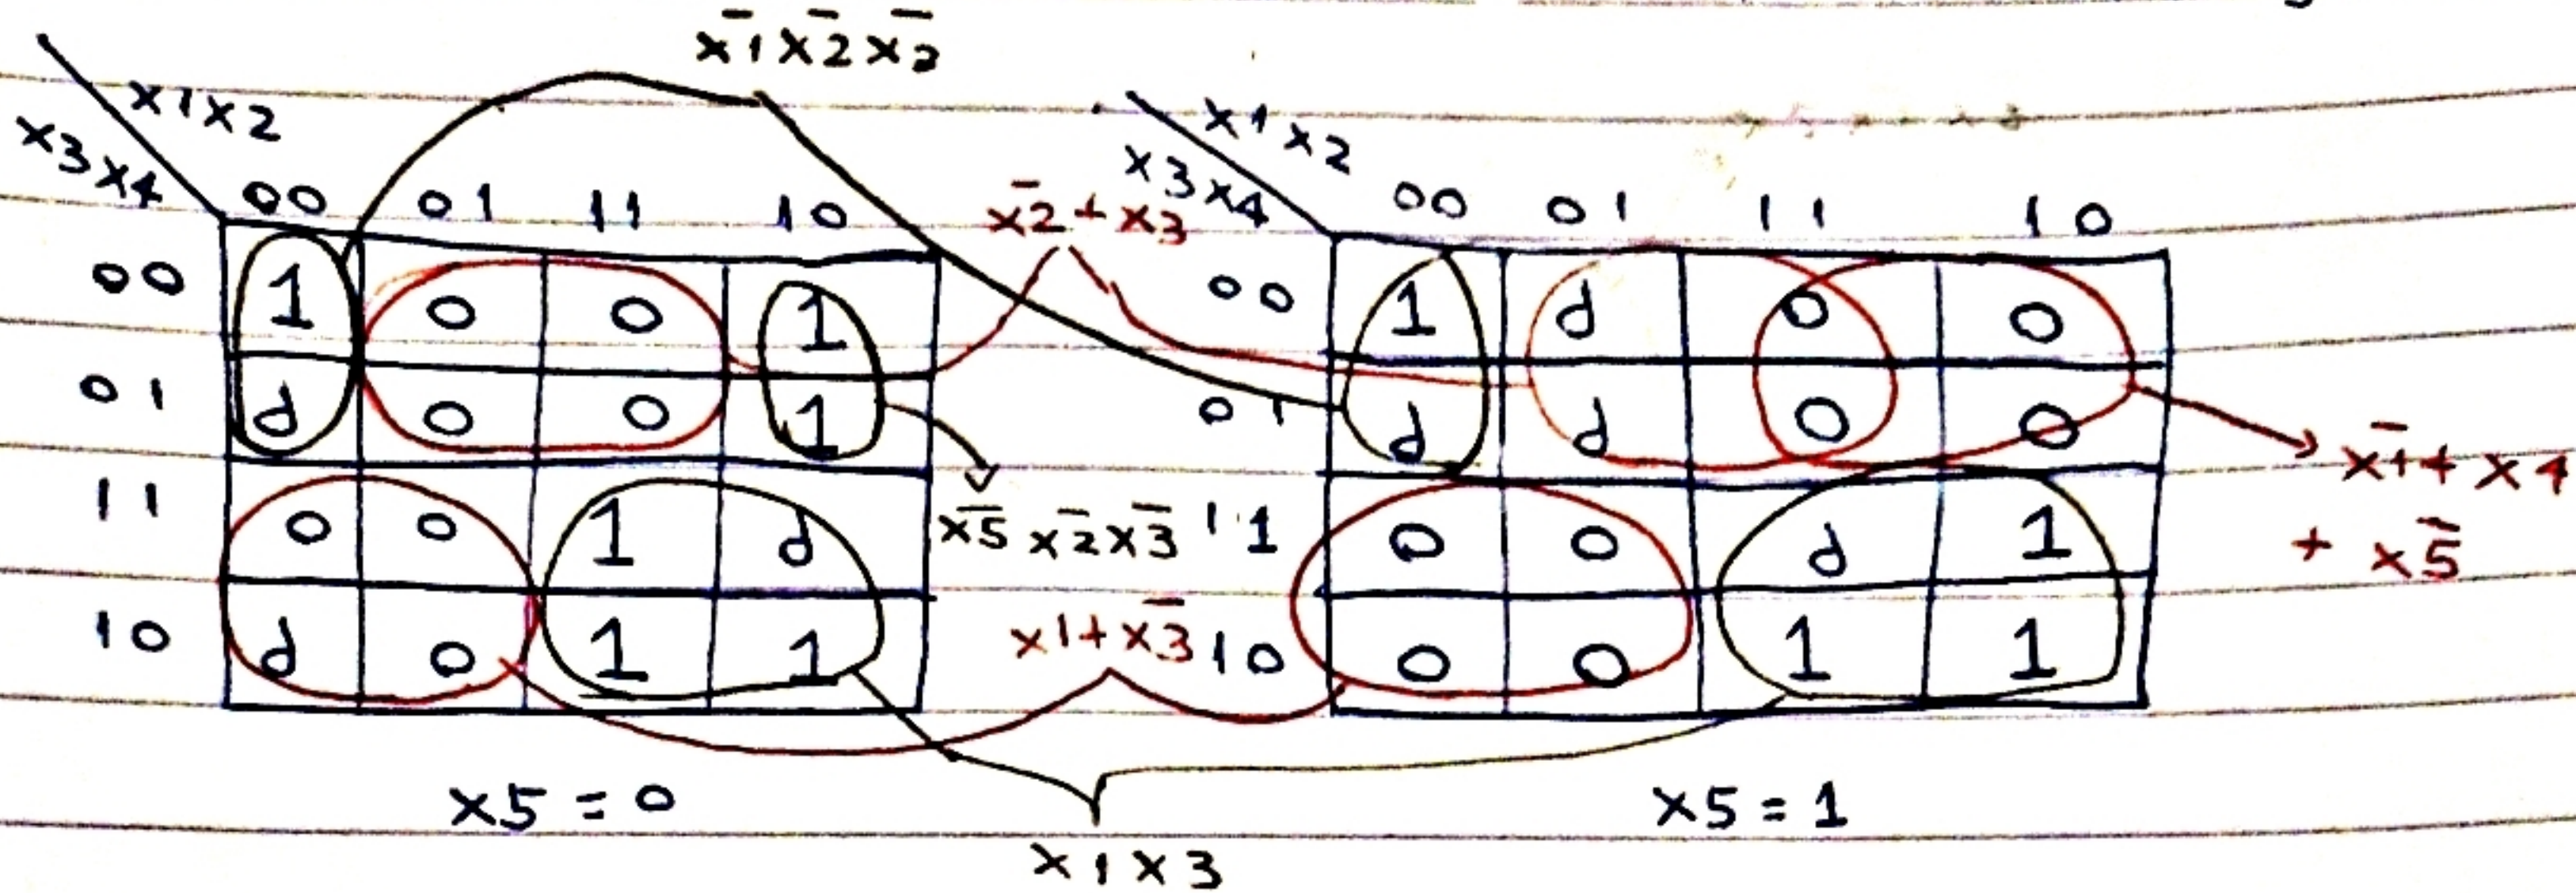 x̄1 x̄2 x̄3
x1x2
x3x4
00 01 11 10
00 1 0 0 1
01 d 0 0 1
11 0 0 1 d
10 d 0 1 1
x5 = 0
x̄2 + x3
x̄5 x̄2 x̄3
x1 + x̄3
x1x2
x3x4
00 01 11 10
00 1 d 0 0
01 d d 0 0
11 0 0 d 1
10 0 0 1 1
x5 = 1
x̄1 + x4
+ x̄5
x1x3